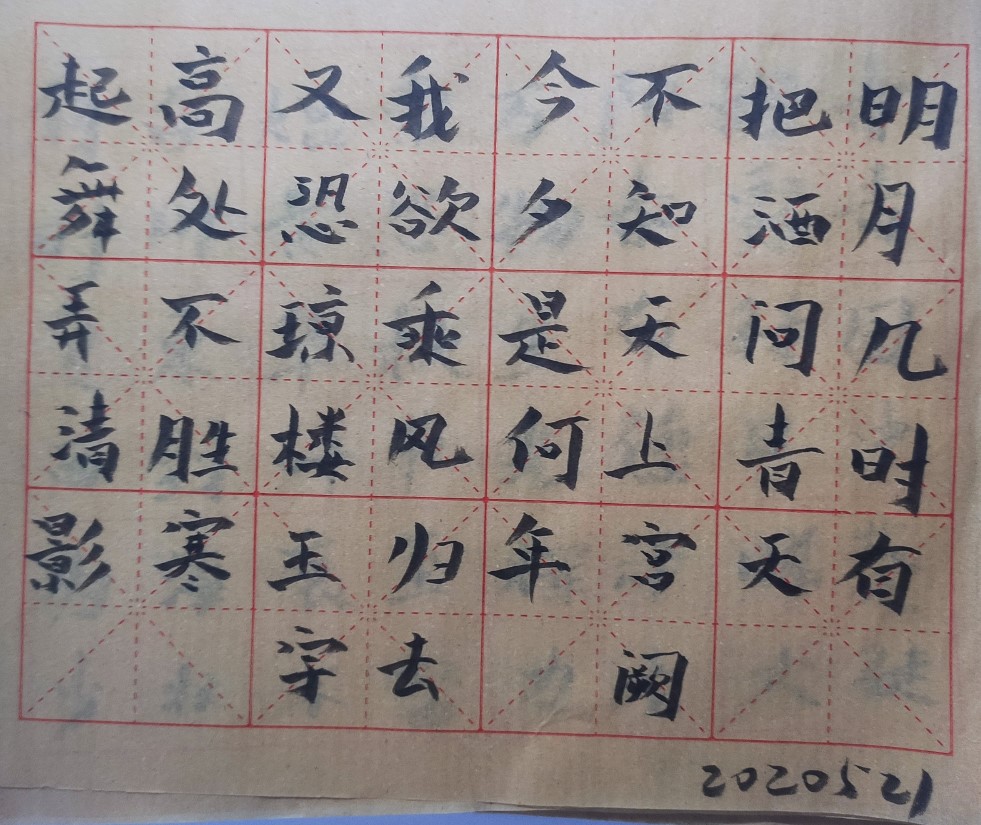 明月几时有
把酒问青天
不知天上宫阙
今夕是何年
我欲乘风归去
又恐琼楼玉宇
高处不胜寒
起舞弄清影
2020521